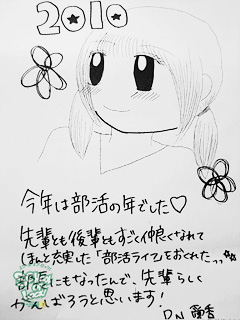 2010
今年は部活の年でした♡
先輩とも後輩ともすごく仲良くなれて
(私と)充実した「部活ライフ」をおくれたっっ☆
にもなったんで、先輩らしく
がんばろうと思います!
P.N